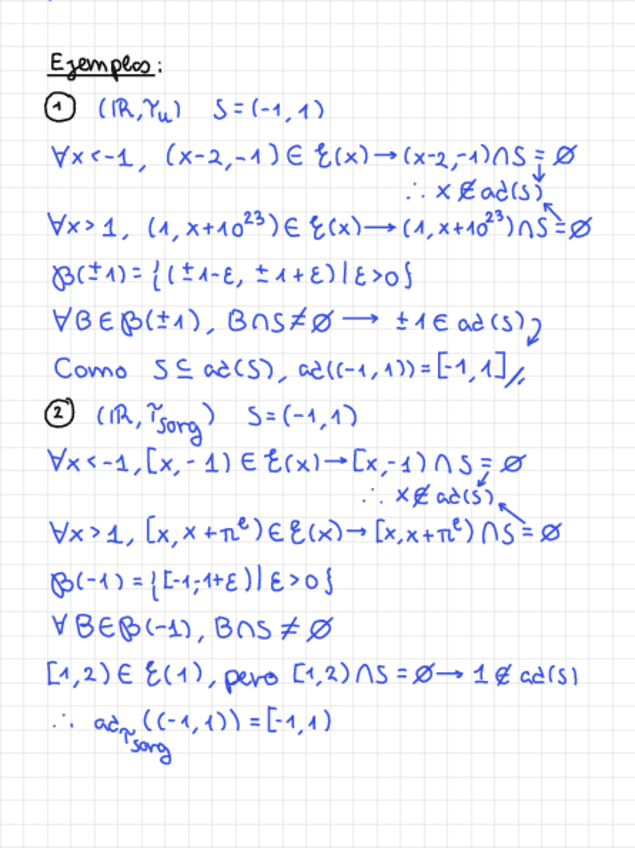 Ejemplos:
① (ℝ, τᵤ) S=(-1,1)
∀x<-1, (x-2,-1)∈ℰ(x)→(x-2,-1)∩S=∅
∴ x∉ad(S)
∀x>1, (1,x+10²³)∈ℰ(x)→(1,x+10²³)∩S=∅
β(±1)={(±1-ε, ±1+ε)|ε>0}
∀B∈β(±1), B∩S≠∅ → ±1∈ad(S)
Como S⊆ad(S), ad((-1,1))=[-1,1]//
② (ℝ, τ_sorg) S=(-1,1)
∀x<-1, [x,-1)∈ℰ(x)→[x,-1)∩S=∅
∴ x∉ad(S)
∀x>1, [x,x+πᵉ)∈ℰ(x)→[x,x+πᵉ)∩S=∅
β(-1)={[-1,-1+ε)|ε>0}
∀B∈β(-1), B∩S≠∅
[1,2)∈ℰ(1), pero [1,2)∩S=∅→1∉ad(S)
∴ ad_τ_sorg((-1,1))=[-1,1)